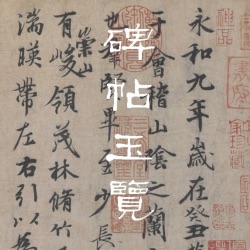 碑帖玉覽
永和九年歲在癸丑
于會稽山陰之蘭
也羣賢畢至少長
有崇山峻領茂林脩竹
湍暎帶左右引以為